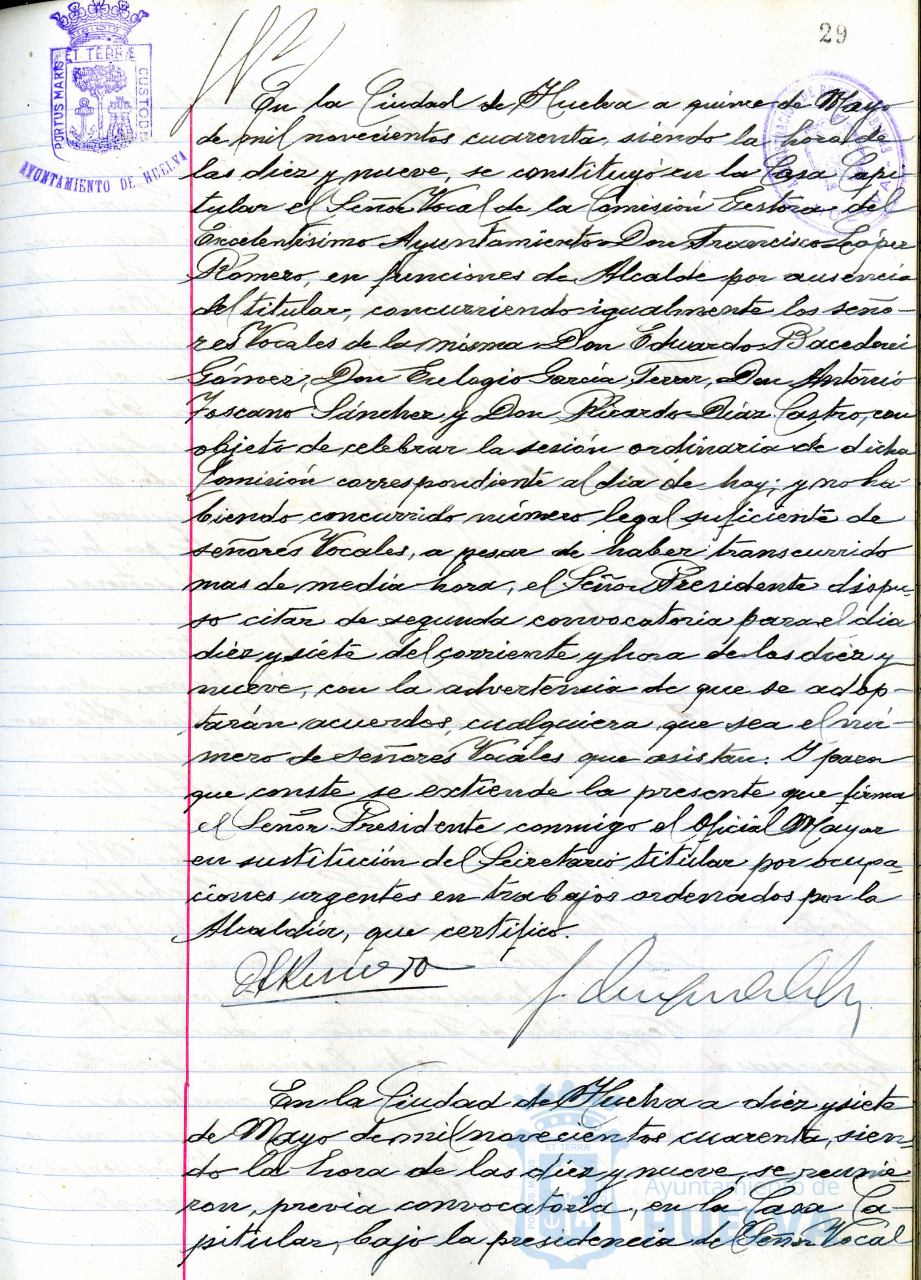 29
PORTUS MARIS ET TERRÆ CUSTODIA
AYUNTAMIENTO DE HUELVA
En la Ciudad de Huelva a quince de Mayo
de mil novecientos cuarenta, siendo la hora de
las diez y nueve, se constituyó en la Casa Capi-
tular el Señor Vocal de la Comisión Gestora del
Excelentísimo Ayuntamiento Don Francisco López
Romero, en funciones de Alcalde por ausencia
del titular, concurriendo igualmente los seño-
res Vocales de la misma Don Eduardo
Gómez, Don Eulogio García Don Antonio
Toscano Sánchez y Don Ricardo Díaz Castro, con
objeto de celebrar la sesión ordinaria de dicha
Comisión correspondiente al día de hoy; y no ha-
biendo concurrido número legal suficiente de
señores Vocales, a pesar de haber transcurrido
mas de media hora, el Señor Presidente dispu-
so citar de segunda convocatoria para el dia
diez y siete del corriente y hora de las diez y
nueve, con la advertencia de que se adop-
tarán acuerdos, cualquiera que sea el nú-
mero de señores Vocales que asistan. Y para
que conste se extiende la presente que firma
el Señor Presidente conmigo el Oficial Mayor
en sustitución del Secretario titular por ocupa-
ciones urgentes en trabajos ordenados por la
Alcaldía, que certifico.
En la Ciudad de Huelva a diez y siete
de Mayo de mil novecientos cuarenta, sien-
do la hora de las diez y nueve se reunie-
ron, previa convocatoria, en la Casa Ca-
pitular, bajo la presidencia de Señor Vocal
Ayuntamiento de
HUELVA